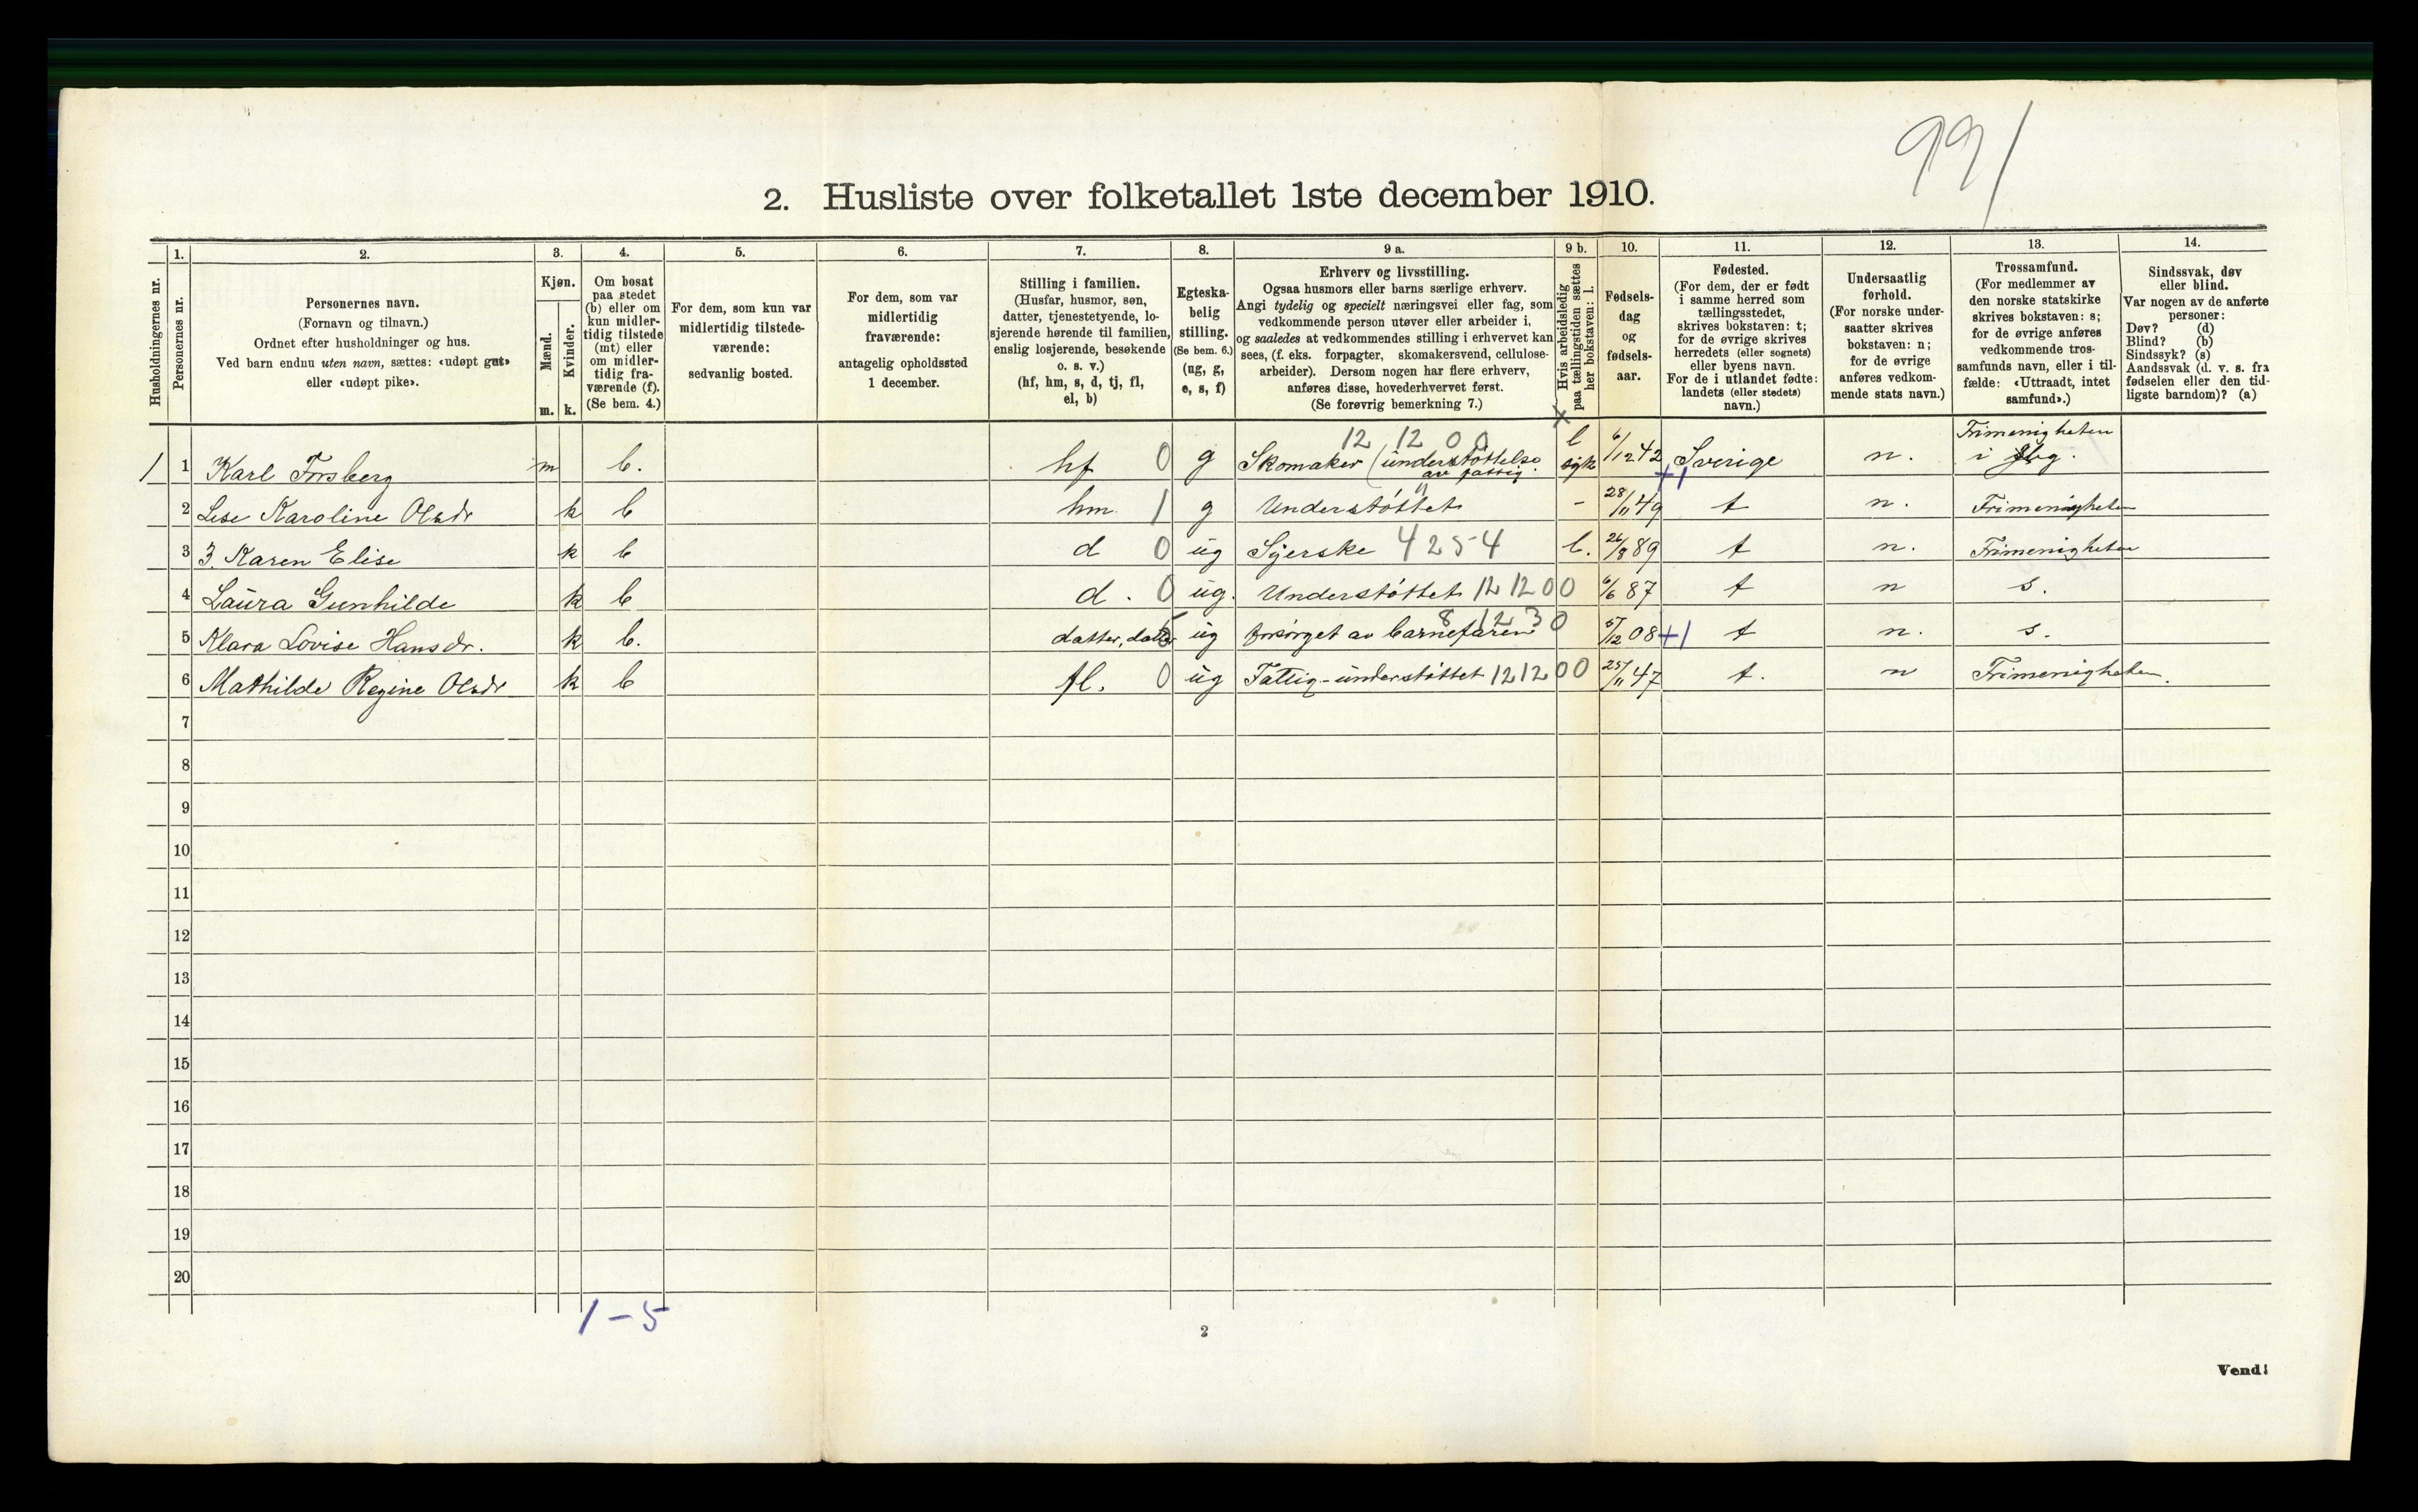 991
2. Husliste over folketallet 1ste december 1910.
1. 2. 3. 4. 5. 6. 7. 8. 9 a. 9 b. 10. 11. 12. 13. 14.
Husholdningernes nr.
Personernes nr.
Personernes navn.
(Fornavn og tilnavn.)
Ordnet efter husholdninger og hus.
Ved barn endnu uten navn, sættes: «udøpt gut»
eller «udøpt pike».
Kjøn.
Mænd.
Kvinder.
m. k.
Om bosat
paa stedet
(b) eller om
kun midler-
tidig tilstede
(mt) eller
om midler-
tidig fra-
værende (f).
(Se bem. 4.)
For dem, som kun var
midlertidig tilstede-
værende:
sedvanlig bosted.
For dem, som var
midlertidig
fraværende:
antagelig opholdssted
1 december.
Stilling i familien.
(Husfar, husmor, søn,
datter, tjenestetyende, lo-
sjerende hørende til familien,
enslig losjerende, besøkende
o. s. v.)
(hf, hm, s, d, tj, fl,
el, b)
Egteska-
belig
stilling.
(Se bem. 6.)
(ug, g,
e, s, f)
Erhverv og livsstilling.
Ogsaa husmors eller barns særlige erhverv.
Angi tydelig og specielt næringsvei eller fag, som
vedkommende person utøver eller arbeider i,
og saaledes at vedkommendes stilling i erhvervet kan
sees, (f. eks. forpagter, skomakersvend, cellulose-
arbeider). Dersom nogen har flere erhverv,
anføres disse, hovederhvervet først.
(Se forøvrig bemerkning 7.)
Hvis arbeidsledig
paa tællingstiden sættes
her bokstaven: l.
Fødsels-
dag
og
fødsels-
aar.
Fødested.
(For dem, der er født
i samme herred som
tællingsstedet,
skrives bokstaven: t;
for de øvrige skrives
herredets (eller sognets)
eller byens navn.
For de i utlandet fødte:
landets (eller stedets)
navn.)
Undersaatlig
forhold.
(For norske under-
saatter skrives
bokstaven: n;
for de øvrige
anføres vedkom-
mende stats navn.)
Trossamfund.
(For medlemmer av
den norske statskirke
skrives bokstaven: s;
for de øvrige anføres
vedkommende tros-
samfunds navn, eller i til-
fælde: «Uttraadt, intet
samfund».)
Sindssvak, døv
eller blind.
Var nogen av de anførte
personer:
Døv? (d)
Blind? (b)
Sindssyk? (s)
Aandssvak (d. v. s. fra
fødselen eller den tid-
ligste barndom)? (a)
12 12 0 0 l Frimenigheten
1 1 Karl Forsberg m b. hf 0 g Skomaker (understøttelse syk 6/12 42 Sverige n. i
av fattig. +1
2 Lise Karoline Olsdr k b hm 1 g Understøttet - 28/11 49 t n. Frimenigheten
3 3. Karen Elise k b d 0 ug Syerske 4254 l. 26/8 89 t n. Frimenigheten
4 Laura Gunhilde k b d. 0 ug. Understøttet 121200 6/6 87 t n s.
8 12 3 0
5 Klara Lovise Hansdr. k b. datter, datter ug forsørget av barnefaren 5/12 08 +1 t n. s.
6 Mathilde Regine Olsdr k b fl. 0 ug Fattig-understøttet 121200 25/11 47 t. n Frimenigheten.
7
8
9
10
11
12
13
14
15
16
17
18
19
20
1-5
2
Vend!